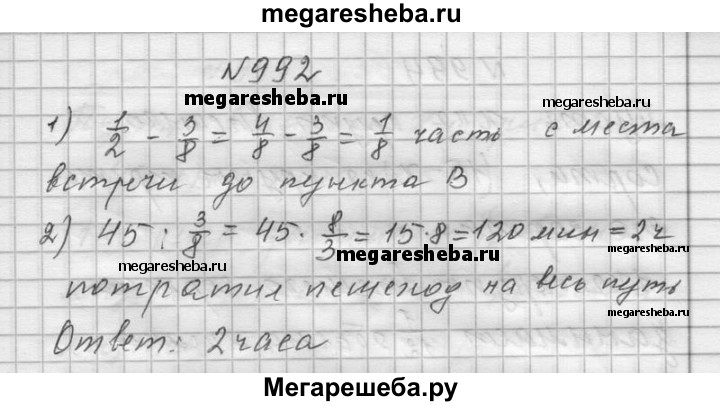 megaresheba.ru
№992
megaresheba.ru
megaresheba.ru
1) 1/2 - 3/8 = 4/8 - 3/8 = 1/8 часть с места
встречи до пункта В
2) 45 : 3/8 = 45 · 8/3 = 15·8 = 120 мин = 2ч
megaresheba.ru
megaresheba.ru
megaresheba.ru
потратил пешеход на весь путь
megaresheba.ru
Ответ: 2 часа
Мегарешеба.ру